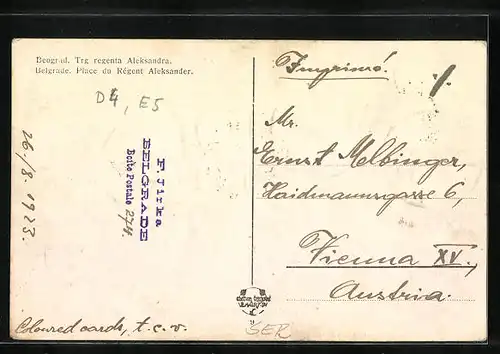 Beograd. Trg regenta Aleksandra.
Belgrade. Place du Régent Aleksander.
D4, E5
F. Jirka
BELGRADE
Boite Postale 274.
26./8. 1923.
Coloured cards, t.c.v.
Imprimé.
1.
Mr.
Ernst Melbinger,
Haidmannsgasse 6,
Vienna XV.,
Austria.
SER